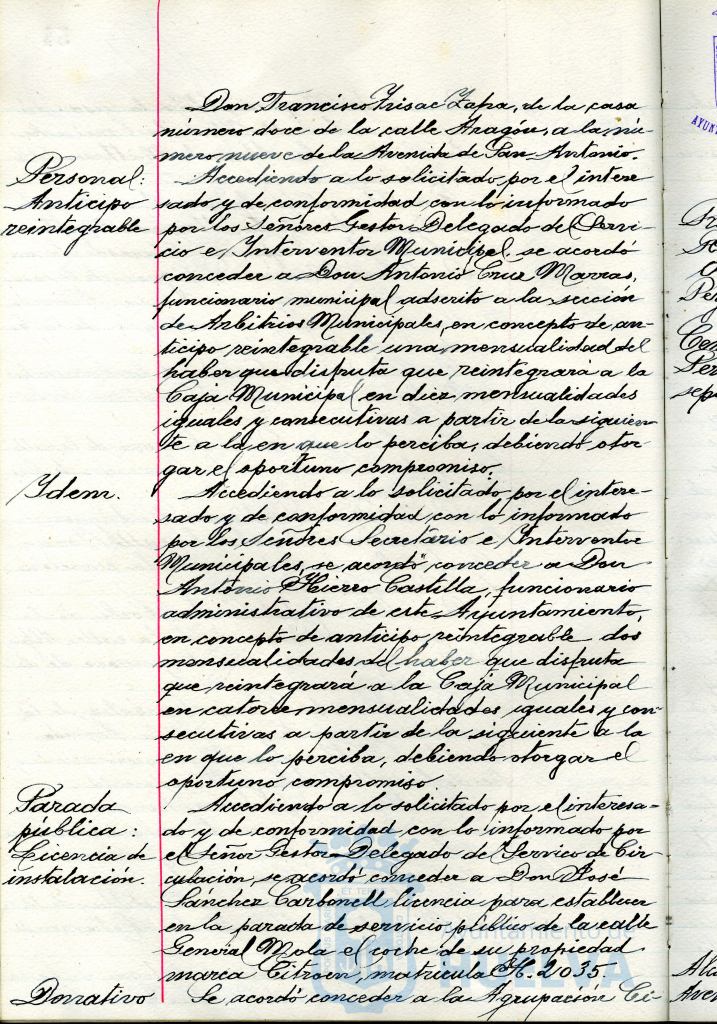 Don Francisco Frisac Zapa, de la casa
número doce de la calle Aragón, a la nú-
mero nueve de la Avenida de San Antonio.
Personal:
Anticipo
reintegrable
Accediendo a lo solicitado por el intere
sado y de conformidad con lo informado
por los Señores Gestor Delegado del Servi-
cio e Interventor Municipal, se acordó
conceder a Don Antonio Cruz Marras,
funcionario municipal adscrito a la sección
de Arbitrios Municipales, en concepto de an-
ticipo reintegrable una mensualidad del
haber que disfruta que reintegrará a la
Caja Municipal en diez mensualidades
iguales y consecutivas a partir de la siguien-
te a la en que lo perciba, debiendo otor-
gar el oportuno compromiso.
Idem.
Accediendo a lo solicitado por el intere-
sado y de conformidad con lo informado
por los Señores Secretario e Interventor
Municipales, se acordó conceder a Don
Antonio Hierro Castilla, funcionario
administrativo de este Ayuntamiento,
en concepto de anticipo reintegrable dos
mensualidades del haber que disfruta
que reintegrará a la Caja Municipal
en catorce mensualidades iguales y con-
secutivas a partir de la siguiente a la
en que lo perciba, debiendo otorgar el
oportuno compromiso.
Parada
pública:
Licencia de
instalación.
Accediendo a lo solicitado por el interesa-
do y de conformidad con lo informado por
el Señor Gestor Delegado de Servicio de Cir-
culación, se acordó conceder a Don José
Sánchez Carbonell licencia para establecer
en la parada de servicio público de la calle
General Mola el coche de su propiedad
marca Citroen, matrícula H. 2035.
Donativo
Se acordó conceder a la Agrupación Ci-
Ayuntamiento de
HUELVA